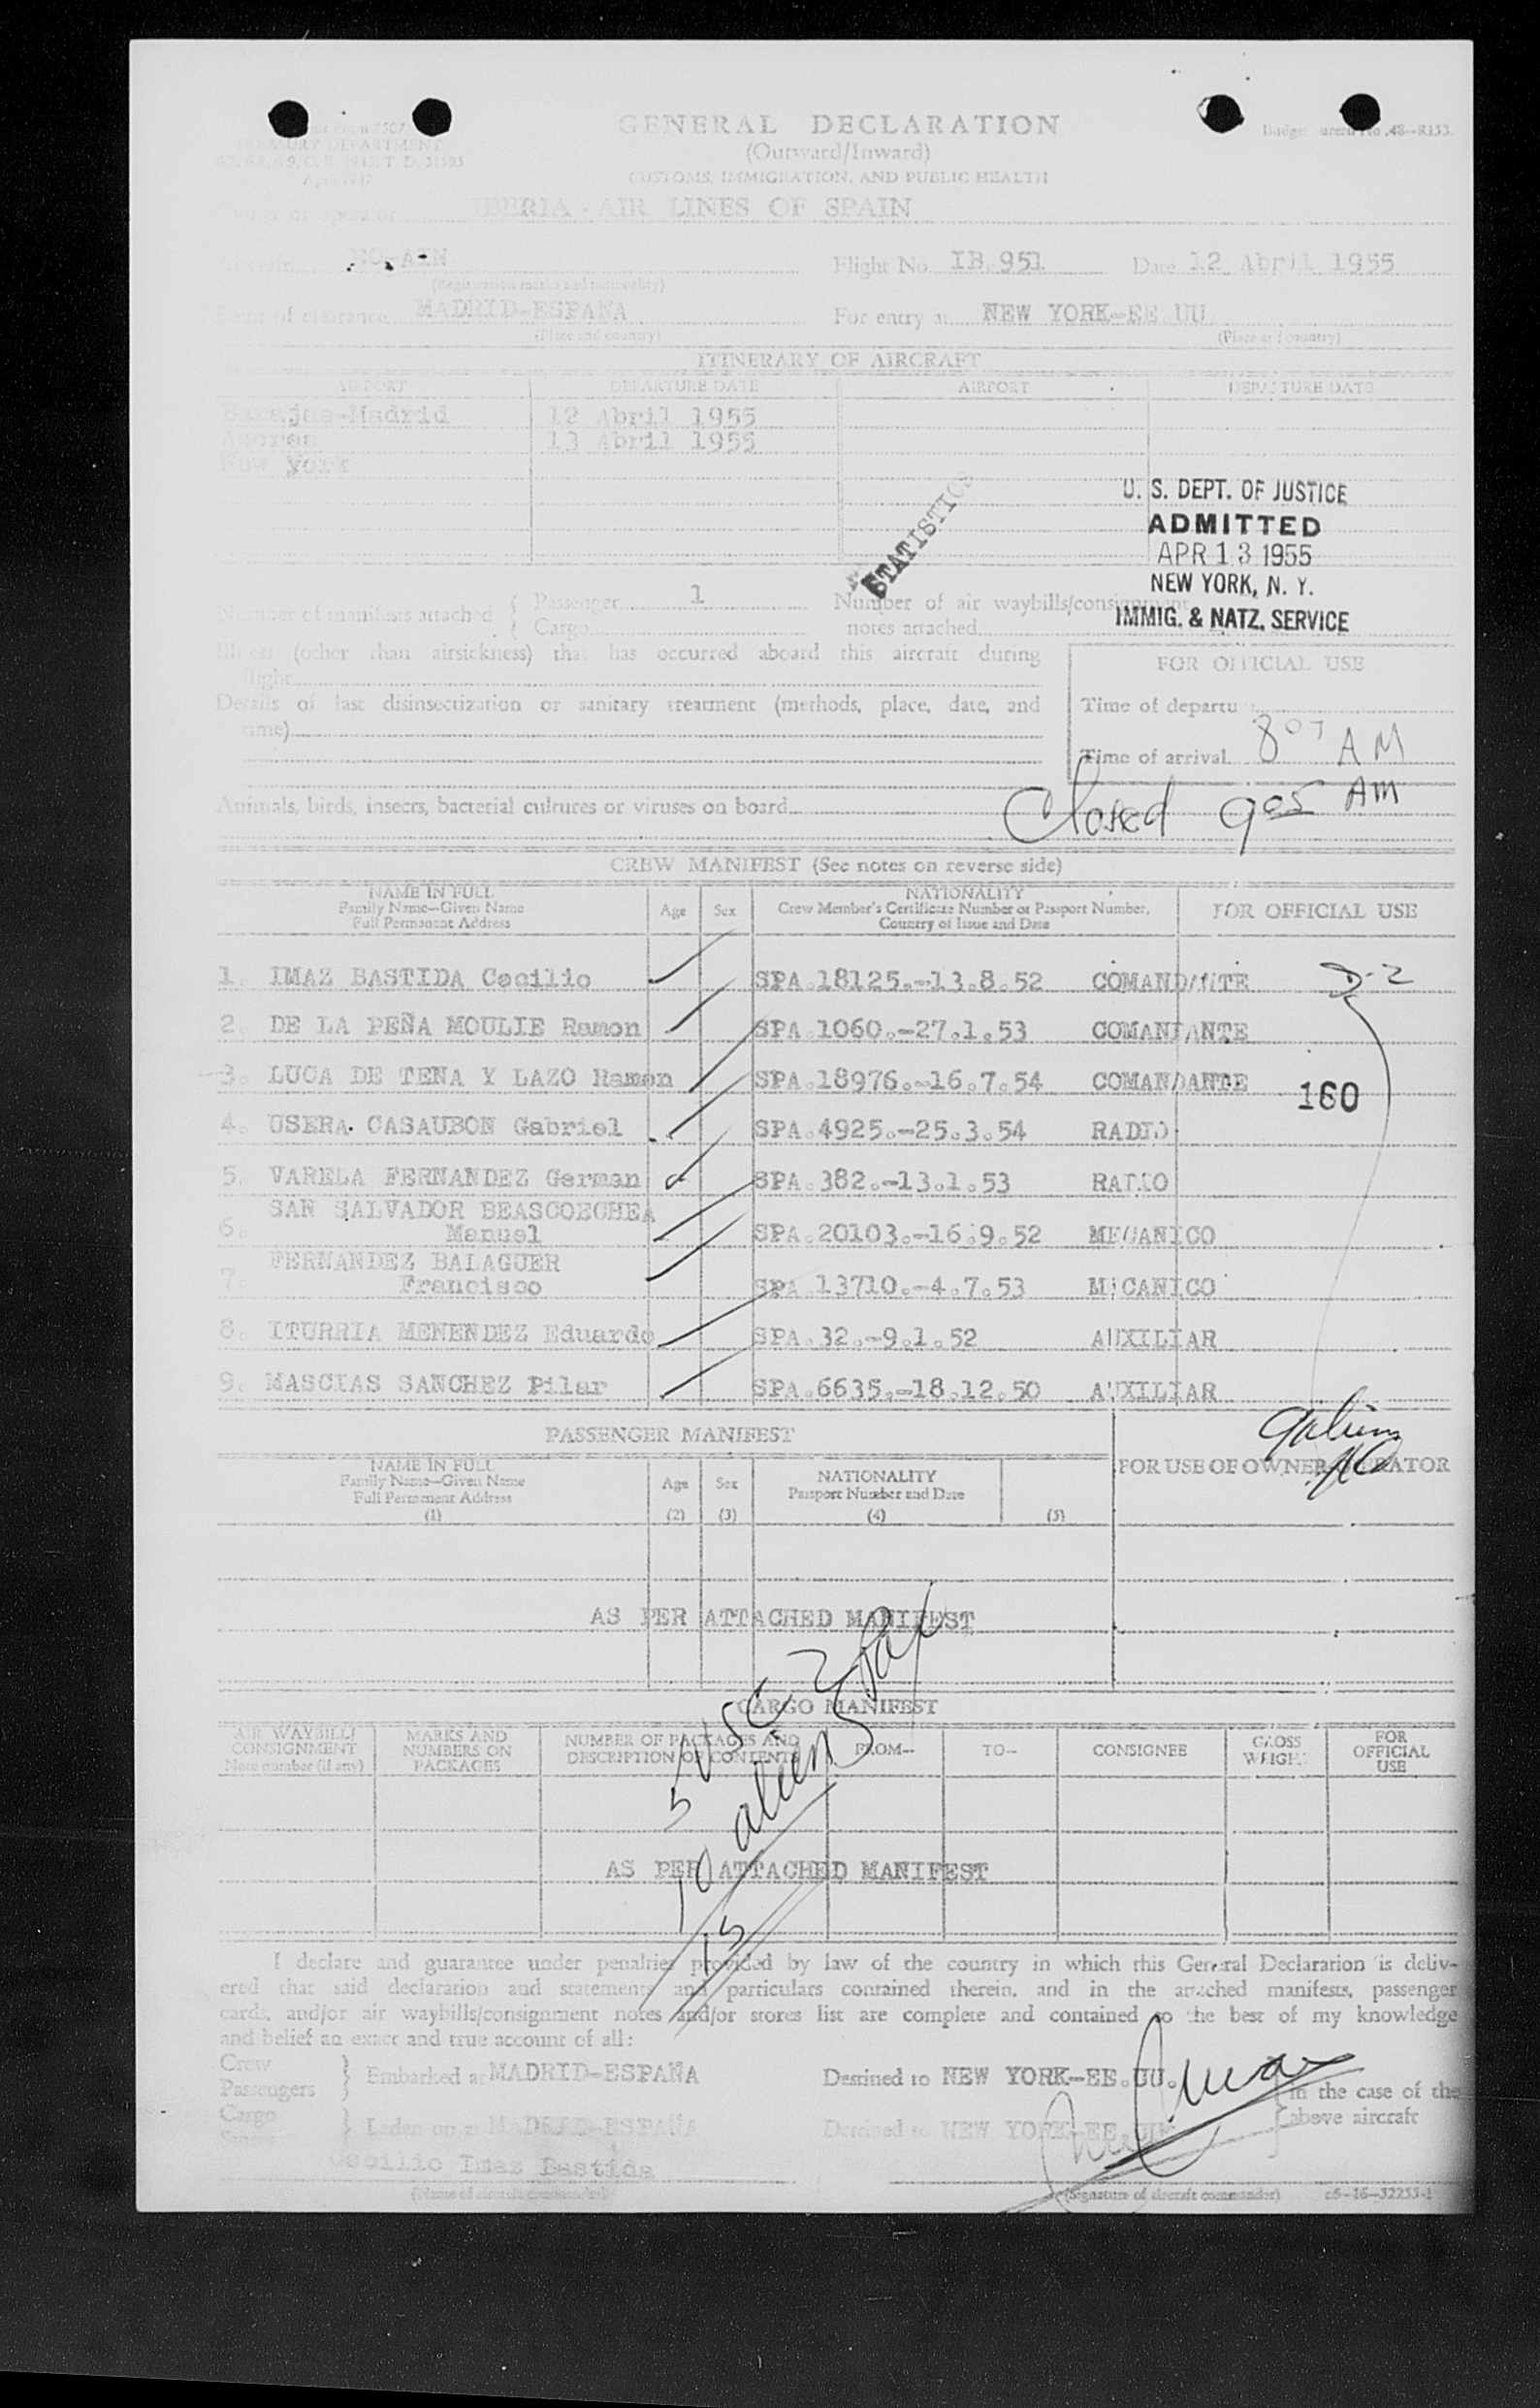 GENERAL DECLARATION
(Outward/Inward)
CUSTOMS, IMMIGRATION, AND PUBLIC HEALTH
TREASURY DEPARTMENT
IBERIA - AIR LINES OF SPAIN
Flight No. IB.951 Date 12 Abril 1955
(Registration marks and nationality)
Point of clearance MADRID-ESPAÑA For entry at NEW YORK-EE.UU
(Place and country) (Place and country)
ITINERARY OF AIRCRAFT
AIRPORT DEPARTURE DATE AIRPORT DEPARTURE DATE
Barajas-Madrid 12 Abril 1955
Azores 13 Abril 1955
New York
STATISTICS
U. S. DEPT. OF JUSTICE
ADMITTED
APR 13 1955
NEW YORK, N. Y.
IMMIG. & NATZ. SERVICE
Number of manifests attached { Passenger 1 Number of air waybills/consignment
Cargo notes attached
Illness (other than airsickness) that has occurred aboard this aircraft during
flight
FOR OFFICIAL USE
Details of last disinsectization or sanitary treatment (methods, place, date, and
time)
Time of departure
Time of arrival 8 07 AM
Closed 9 05 AM
Animals, birds, insects, bacterial cultures or viruses on board
CREW MANIFEST (See notes on reverse side)
NAME IN FULL
Family Name—Given Name
Full Permanent Address
Age Sex
NATIONALITY
Crew Member's Certificate Number or Passport Number,
Country of Issue and Date
FOR OFFICIAL USE
1. IMAZ BASTIDA Cecilio SPA.18125.-13.8.52 COMANDANTE D-2
2. DE LA PEÑA MOULIE Ramon SPA.1060.-27.1.53 COMANDANTE
3. LUCA DE TENA Y LAZO Ramon SPA.18976.-16.7.54 COMANDANTE
160
4. USERA CASAUBON Gabriel SPA.4925.-25.3.54 RADIO
5. VARELA FERNANDEZ German SPA.382.-13.1.53 RADIO
SAN SALVADOR BEASCOECHEA
6. Manuel SPA.20103.-16.9.52 MECANICO
FERNANDEZ BALAGUER
7. Francisco SPA.13710.-4.7.53 MECANICO
8. ITURRIA MENENDEZ Eduardo SPA.32.-9.1.52 AUXILIAR
9. MASCIAS SANCHEZ Pilar SPA.6635.-18.12.50 AUXILIAR
PASSENGER MANIFEST
NAME IN FULL
Family Name—Given Name
Full Permanent Address
(1)
Age
(2)
Sex
(3)
NATIONALITY
Passport Number and Date
(4)
(5)
FOR USE OF OWNER OPERATOR
AS PER ATTACHED MANIFEST
5 USC
10 alien
15
CARGO MANIFEST
AIR WAYBILL/
CONSIGNMENT
Note number (if any)
MARKS AND
NUMBERS ON
PACKAGES
NUMBER OF PACKAGES AND
DESCRIPTION OF CONTENTS
FROM—
TO—
CONSIGNEE
GROSS
WEIGHT
FOR
OFFICIAL
USE
AS PER ATTACHED MANIFEST
I declare and guarantee under penalties provided by law of the country in which this General Declaration is deliv-
ered that said declaration and statements and particulars contained therein, and in the attached manifests, passenger
cards, and/or air waybills/consignment notes and/or stores list are complete and contained to the best of my knowledge
and belief an exact and true account of all:
Crew
Passengers } Embarked at MADRID-ESPAÑA Destined to NEW YORK-EE.UU. in the case of the
Cargo } Laden on at MADRID-ESPAÑA Destined to NEW YORK-EE.UU. above aircraft
Cecilio Imaz Bastida
(Name of aircraft commander) (Signature of aircraft commander) 16-32255-1